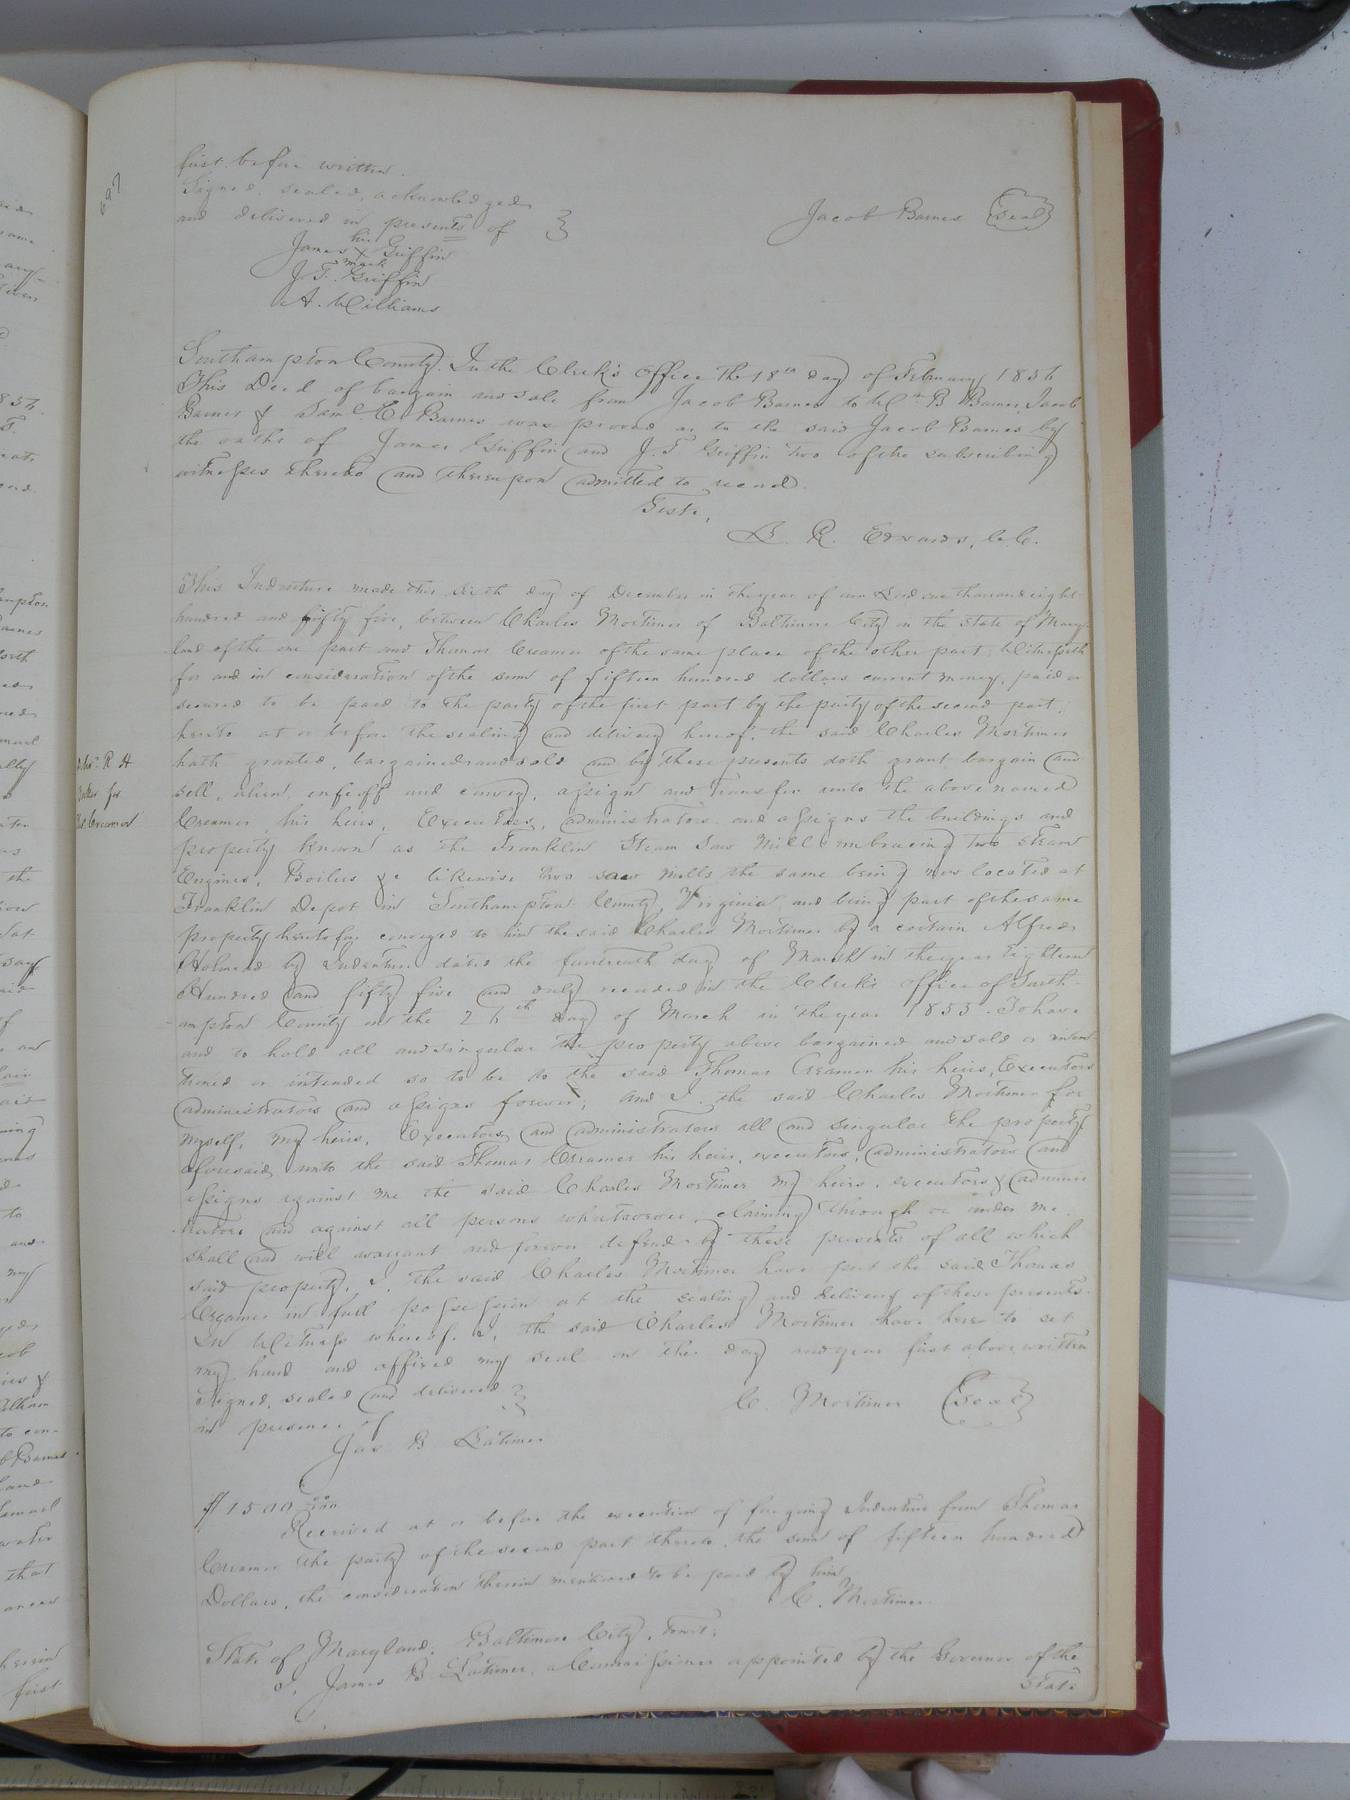 697
first before written.
Signed, sealed, acknowledged
and delivered in presents of
Jacob Barnes Seal
his
James X Griffin
mark
J. T. Griffin
A. Williams
Southampton County. In the Clerk's Office the 18th day of February 1856
This Deed of bargain and sale from Jacob Barnes to Wm B Barnes, Jacob
Barnes & Saml E Barnes was proved as to the said Jacob Barnes by
the oaths of James Griffin and J. T Griffin two of the subscribing
witnesses thereto and thereupon admitted to record.
Teste,
L. R. Edwards, C. C.
This Indenture made this sixth day of December in the year of our Lord one thousand eight
hundred and fifty five, between Charles Mortimer of Baltimore City in the State of Mary-
land of the one part and Thomas Creamer of the same place of the other part, Witnesseth
for and in consideration of the sum of fifteen hundred dollars current money, paid or
secured to be paid to the party of the first part by the party of the second part,
hereto at or before the sealing and delivery hereof, the said Charles Mortimer
hath granted, bargained and sold and by these presents doth grant bargain and
R H
sell, alien, enfeoff and convey, assign and transfer unto the above named
for
Creamer, his heirs, Executors, administrators and assigns the buildings and
Creamer
property known as the Franklin Steam Saw Mill embracing two steam
Engines, Boilers &c likewise two saw mills the same being now located at
Franklin Depot in Southampton County, Virginia, and being part of the same
property heretofore conveyed to him the said Charles Mortimer by a certain Alfred
Holmead by Indenture dated the fourteenth day of March in the year Eighteen
Hundred and fifty five and duly recorded in the Clerk's office of South-
ampton County on the 26th day of March in the year 1855. To have
and to hold all and singular the property above bargained and sold or men-
tioned or intended so to be to the said Thomas Creamer his heirs, Executors
administrators and assigns forever; and I the said Charles Mortimer for
myself, my heirs, Executors, and administrators all and singular the property
aforesaid, unto the said Thomas Creamer his heirs, executors, administrators and
assigns against me the said Charles Mortimer my heirs, executors & adminis-
trators and against all persons whatsoever, claiming through or under me,
shall and will warrant and forever defend by these presents of all which
said property, I, the said Charles Mortimer have put the said Thomas
Creamer in full possession at the sealing and delivery of these presents.
In Witness whereof, I, the said Charles Mortimer have here to set
my hand and affixed my seal on the day and year first above written
Signed, sealed and delivered
C. Mortimer Seal
in presence of
Jas B Latimer
$1500 00/100
Received at or before the execution of foregoing Indenture from Thomas
Creamer the party of the second part thereto, the sum of fifteen hundred
Dollars, the consideration therein mentioned to be paid by him
C. Mortimer.
State of Maryland, Baltimore City, towit;
I, James B Latimer, a Commissioner appointed by the Governor of the
State